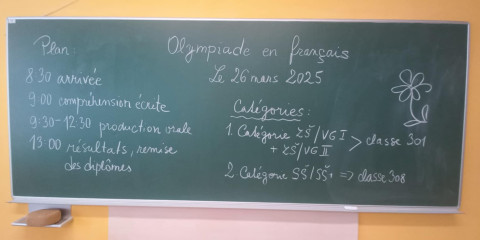 Plan:
8:30 arrivée
9:00 compréhension écrite
9:30-12:30 production orale
13:00 résultats, remise
des diplômes
Olympiade en français
Le 26 mars 2025
Catégories:
1. Catégorie ZŠ/VG I
+ ZŠ/VG II > classe 301
2. Catégorie SŠ/SŠ+ => classe 308